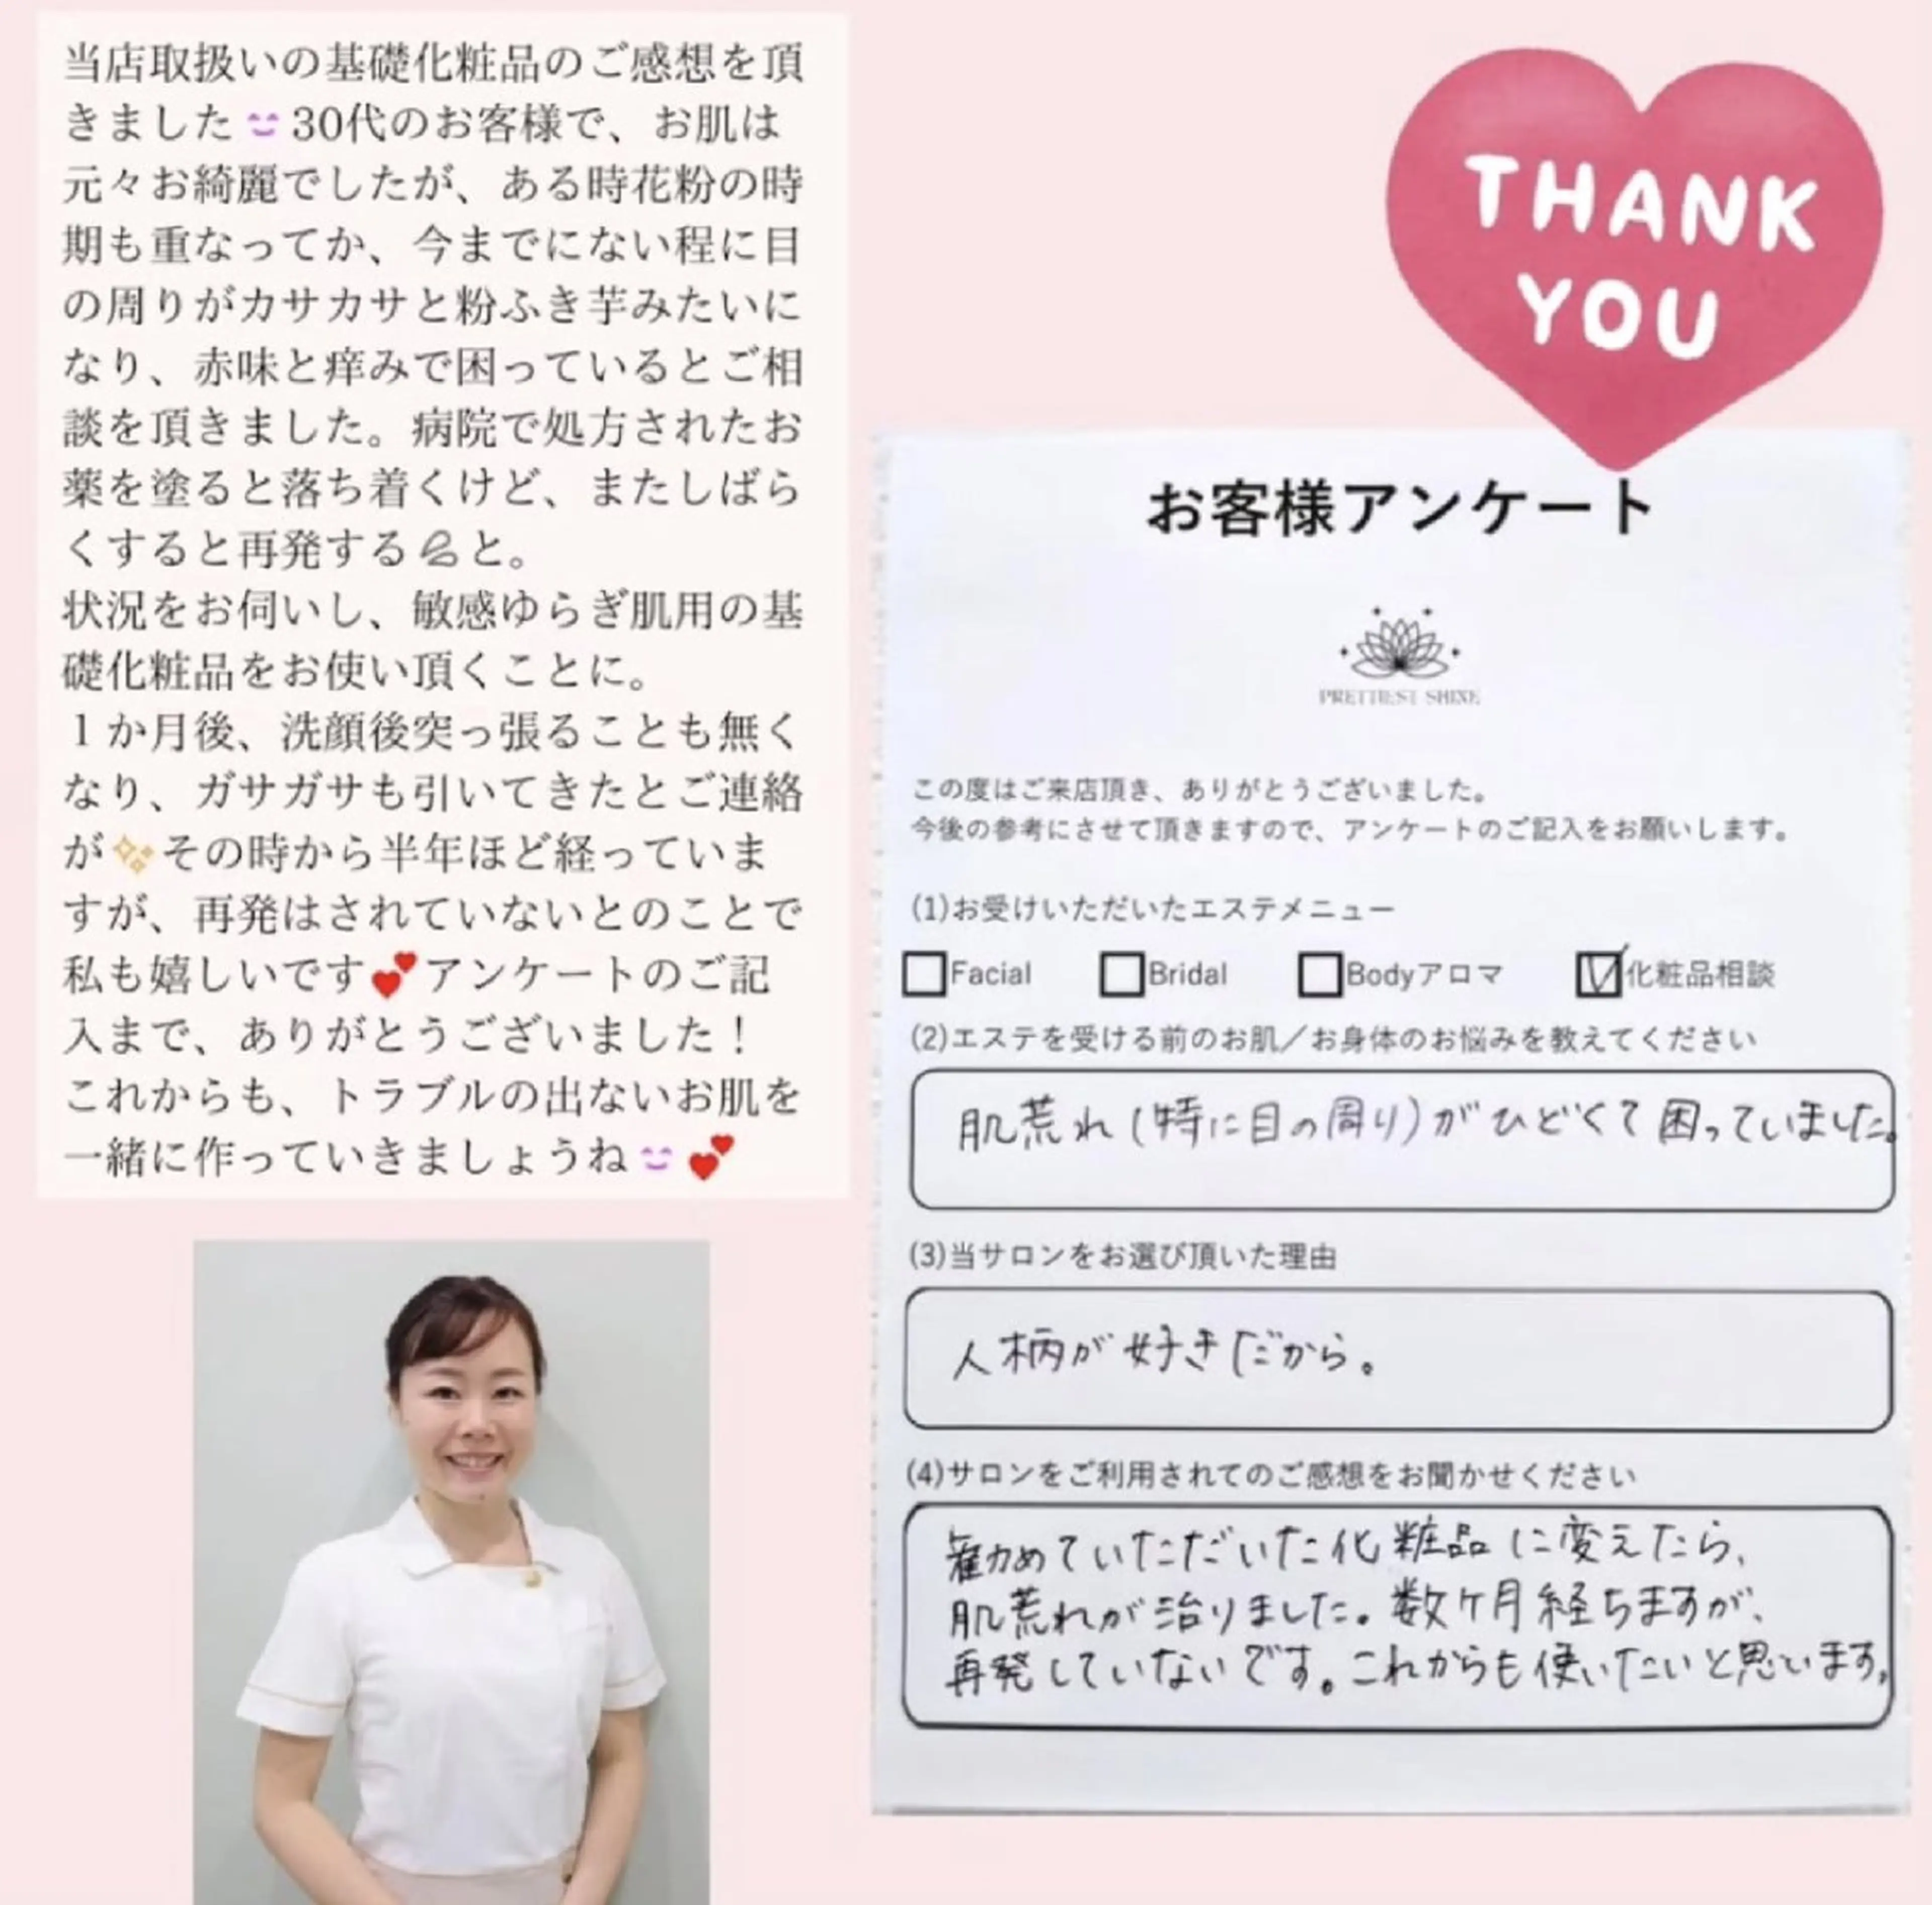 当店取扱いの基礎化粧品のご感想を頂
きました 30代のお客様で、お肌は
元々お綺麗でしたが、ある時花粉の時
期も重なってか、今までにない程に目
の周りがカサカサと粉ふき芋みたいに
なり、赤味と痒みで困っているとご相
談を頂きました。病院で処方されたお
薬を塗ると落ち着くけど、またしばら
くすると再発する💦と。
状況をお伺いし、敏感ゆらぎ肌用の基
礎化粧品をお使い頂くことに。
１か月後、洗顔後突っ張ることも無く
なり、ガサガサも引いてきたとご連絡
が✨その時から半年ほど経っていま
すが、再発はされていないとのことで
私も嬉しいです💕アンケートのご記
入まで、ありがとうございました！
これからも、トラブルの出ないお肌を
一緒に作っていきましょうね 💕
THANK
YOU
お客様アンケート
PRETTIEST SHINE
この度はご来店頂き、ありがとうございました。
今後の参考にさせて頂きますので、アンケートのご記入をお願いします。
(1)お受けいただいたエステメニュー
Facial Bridal Bodyアロマ 化粧品相談
(2)エステを受ける前のお肌／お身体のお悩みを教えてください
肌荒れ(特に目の周り)がひどくて困っていました。
(3)当サロンをお選び頂いた理由
人柄が好きだから。
(4)サロンをご利用されてのご感想をお聞かせください
勧めていただいた化粧品に変えたら、
肌荒れが治りました。数ヶ月経ちますが、
再発していないです。これからも使いたいと思います。